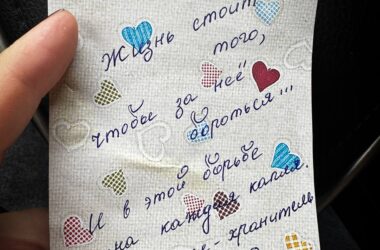 Жизнь стоит
того,
чтобы за неё
бороться...
И в этой борьбе
на каждая капля.
-хранитель